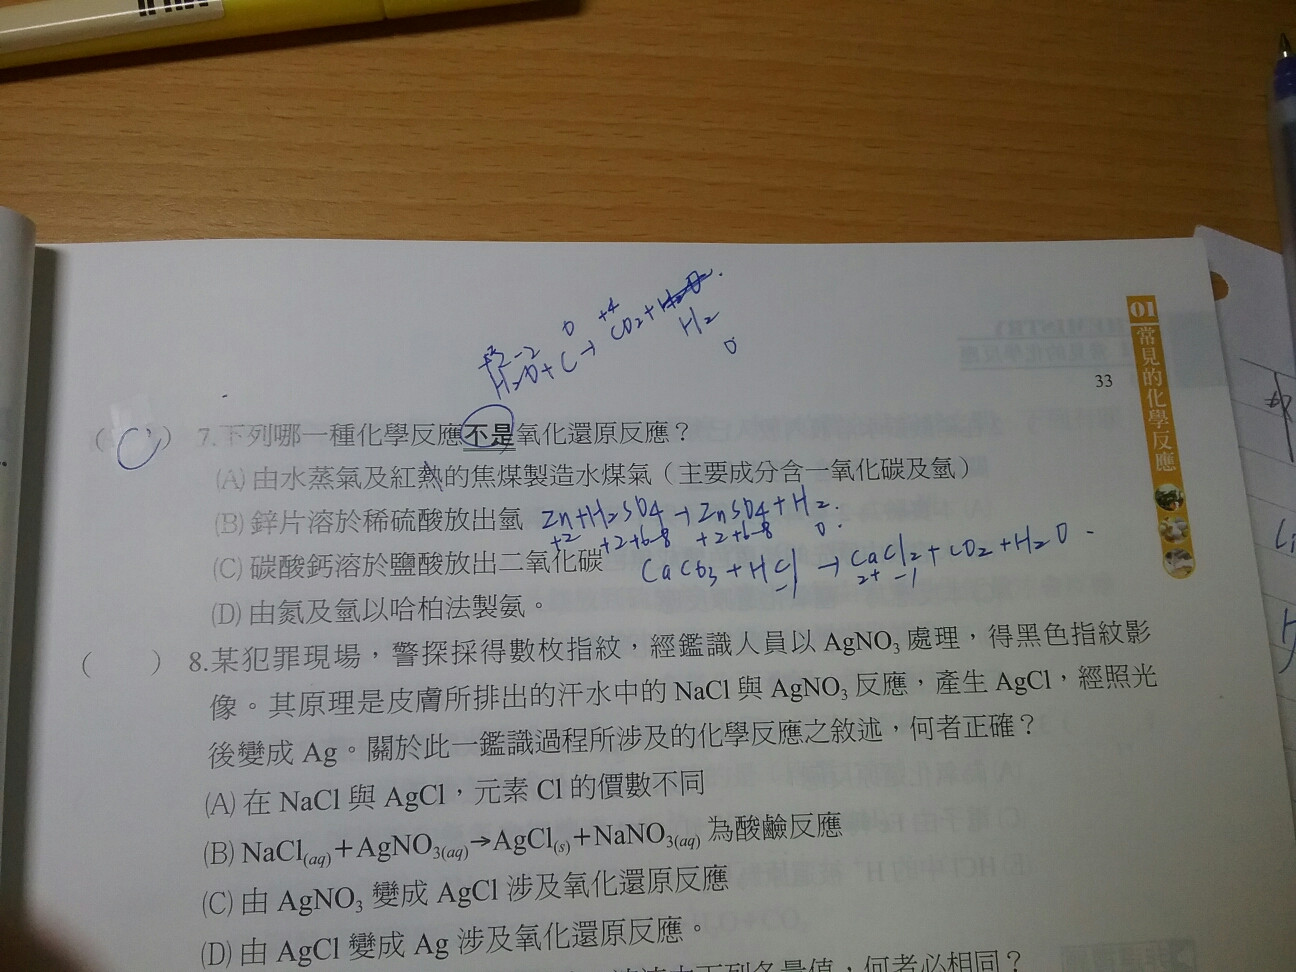 +2 -2 0 +4
H2O + C → CO2 + H2
0
01 常見的化學反應
33
( C ) 7.下列哪一種化學反應不是氧化還原反應？
(A) 由水蒸氣及紅熱的焦煤製造水煤氣（主要成分含一氧化碳及氫）
(B) 鋅片溶於稀硫酸放出氫 Zn+H2SO4→ZnSO4+H2.
+2 +2+6-8 +2+6-8 0
(C) 碳酸鈣溶於鹽酸放出二氧化碳 CaCO3+HCl→CaCl2+CO2+H2O
-1 2+ -1
(D) 由氮及氫以哈柏法製氨。
( ) 8.某犯罪現場，警探採得數枚指紋，經鑑識人員以 AgNO3 處理，得黑色指紋影
像。其原理是皮膚所排出的汗水中的 NaCl 與 AgNO3 反應，產生 AgCl，經照光
後變成 Ag。關於此一鑑識過程所涉及的化學反應之敘述，何者正確？
(A) 在 NaCl 與 AgCl，元素 Cl 的價數不同
(B) NaCl(aq)+AgNO3(aq)→AgCl(s)+NaNO3(aq) 為酸鹼反應
(C) 由 AgNO3 變成 AgCl 涉及氧化還原反應
(D) 由 AgCl 變成 Ag 涉及氧化還原反應。
下列各量值，何者必相同？